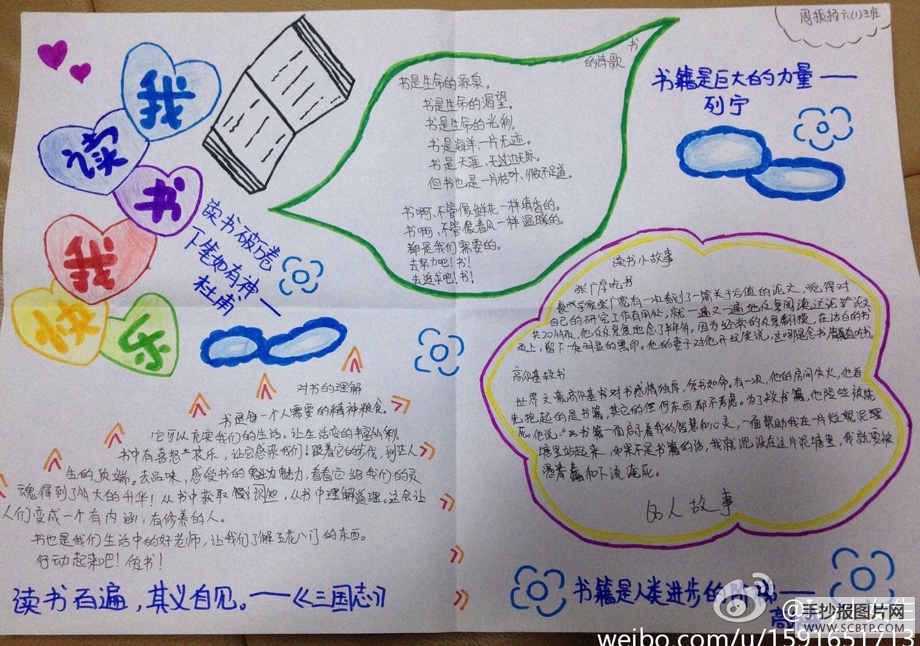 周振扬六(1)班
我
读
书
我
快
乐
书
的诗歌
书是生命的源泉。
书是生命的渴望。
书是生命的光利。
书是海洋一片无迹。
书是天涯、无边无际。
但书也是一片枯叶、微不足道。
书啊、不管像鲜花一样清香的。
书啊、不管像春风一样温暖的。
都是我们需要的。
去努力吧!书!
去追求吧!书!
书籍是巨大的力量——
列宁
读书破万卷
下笔如有神——
杜甫
读书小故事
张广厚吃书
数学家张广厚有一次看到了一篇关于亏值的论文,觉得对
自己的研究工作有用处,就一遍又一遍地反复阅读。这论文
共20多页,他反反复复地念了半年多。因为经常的反复翻摸,在洁白的书
页上,留下一条明显的黑印。他的妻子对他开玩笑说,这哪是念书
高尔基救书
世界文豪高尔基书对书感情独厚,爱书如命。有一次,他的房间失火,他首
先抱起的是书籍,其它的任何东西都不考虑。为了救书籍,他险些被烧
死。他说:"书籍一面启示着我的智慧和心灵,一面帮助我在一片烂泥
塘里站起来,如果不是书籍的话,我就沉没在这片泥塘里,我就要被
愚蠢和下流淹死。
名人故事
对书的理解
书是每一个人需要的精神粮食。
它可以充实我们的生活。让生活变的丰富
书中有喜怒哀乐,让它感染我们!跟着它的步伐,到达人
生的顶端。去品味,感受书的魅力,看看它给我们的灵
魂得到了 大的升华!从书中获取知识,从书中理解道理。这会让
人们变成一个有内涵,有修养的人。
书也是我们生活中的好老师,让我们了解五花八门的东西。
行动起来吧!读书!
读书百遍,其义自见。——《三国志》
书籍是人类进步的
高
手抄报图片网
WWW.SCBTP.COM
weibo.com/u/1591651713